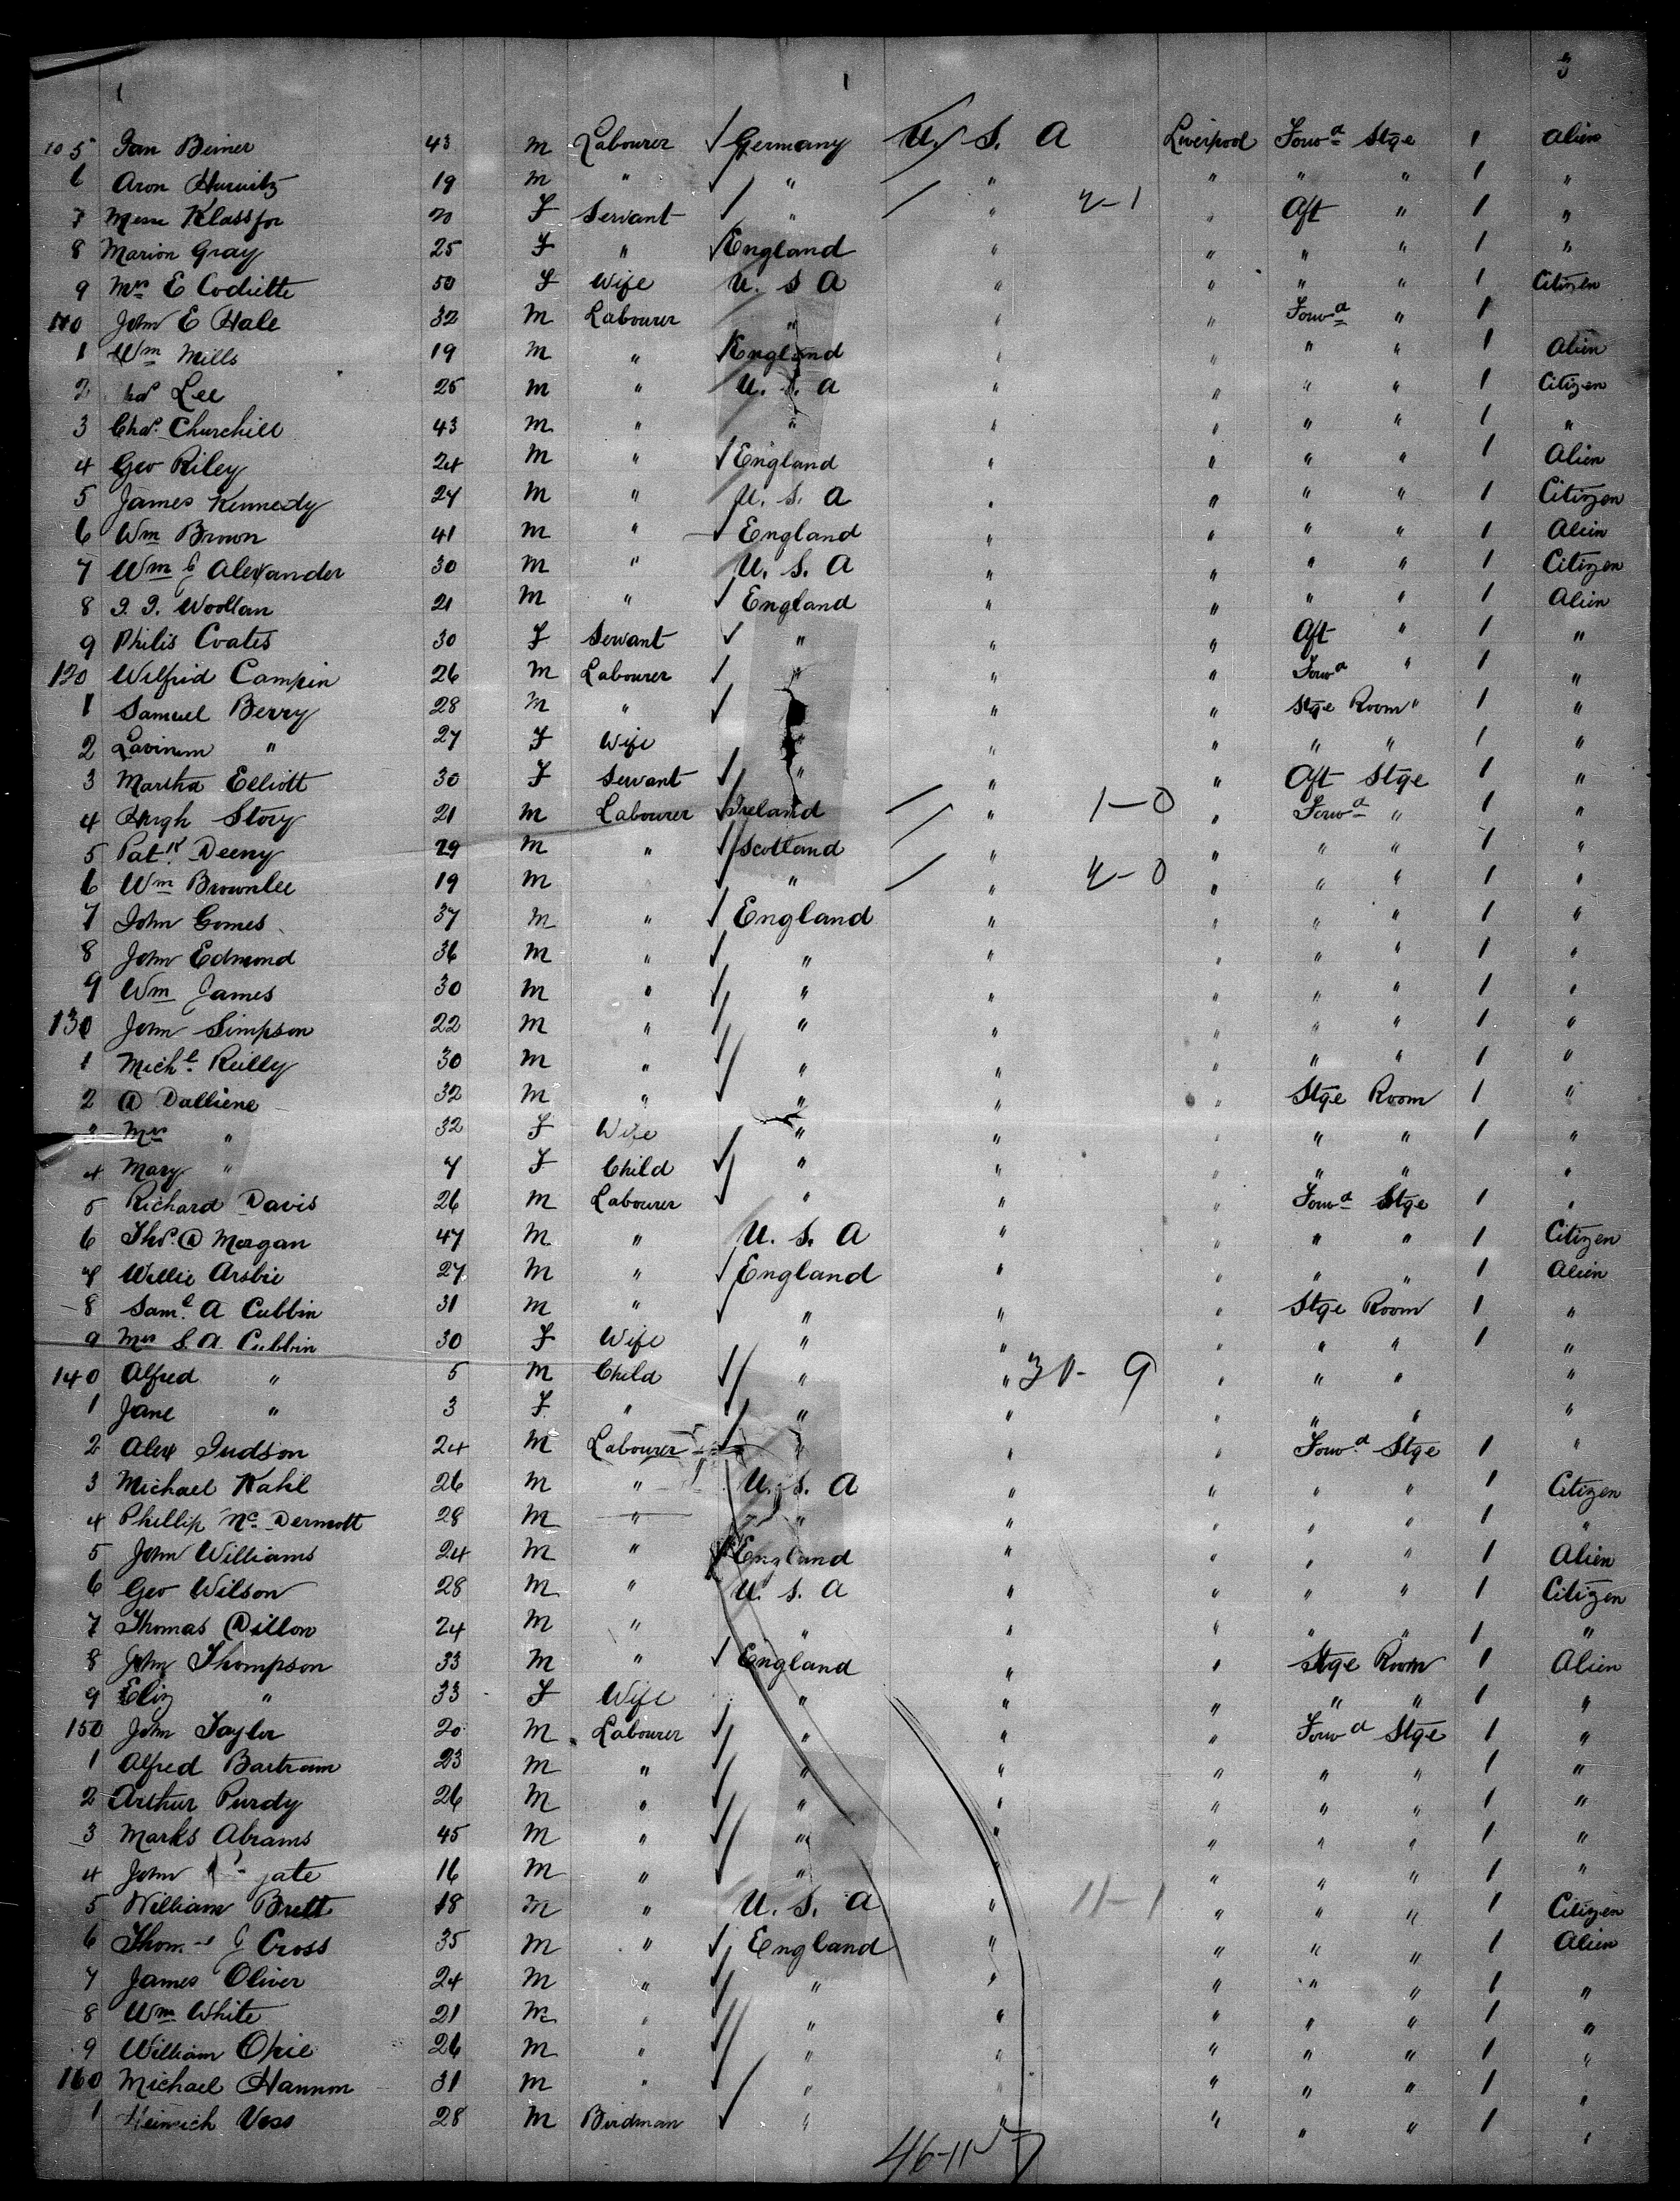 3
105 Jan Beiner 43 M Labourer Germany U. S. A Liverpool Forwd Stge 1 Alien
6 Aron Hurwitz 19 M " " " " " " 1 "
7 Klassfor 20 F Servant " " 4-1 " Aft " 1 "
8 Marion Gray 25 F " England " " " " 1 "
9 Mrs E Codiette 50 F Wife U. S A " " " " 1 Citizen
110 John E Hale 32 M Labourer " " " Forwd " 1
1 Wm Mills 19 M " England " " " " 1 Alien
2 Lee 25 M " U. S. A " " " " 1 Citizen
3 Chas. Churchill 43 M " " " " " " 1 "
4 Geo Riley 24 M " England " " " " 1 Alien
5 James Kennedy 27 M " U. S. A " " " " 1 Citizen
6 Wm Brown 41 M " England " " " " 1 Alien
7 Wm J Alexander 30 M " U. S. A " " " " 1 Citizen
8 Woollan 21 M " England " " " " 1 Alien
9 Philis Coates 30 F Servant " " " Aft " 1 "
120 Wilfrid Campin 26 M Labourer " " " Forwd " 1 "
1 Samuel Berry 28 M " " " Stge Room " 1 "
2 " 27 F Wife " " " " 1 "
3 Martha Elliott 30 F Servant " " " Aft Stge 1 "
4 Hugh Story 21 M Labourer Ireland " 1-0 " Forwd " 1 "
5 Patk Deeny 29 M " Scotland " " " " 1 "
6 Wm Brownlee 19 M " " 4-0 " " " 1 "
7 John Gomes 37 M " England " " " " 1 "
8 John Edmond 36 M " " " " " " 1 "
9 Wm James 30 M " " " " " " 1 "
130 John Simpson 22 M " " " " " " 1 "
1 Michl Reilly 30 M " " " " " " 1 "
2 A Dalliene 32 M " " " " Stge Room 1 "
3 Mrs " 32 F Wife " " " " " 1 "
4 Mary " 7 F Child " " " " " "
5 Richard Davis 26 M Labourer " " " Forwd Stge 1 "
6 Thos. A Morgan 47 M " U. S. A " " " " 1 Citizen
7 Willie Arsbie 27 M " England " " " " 1 Alien
8 Saml A Cubbin 31 M " " " " Stge Room 1 "
9 Mrs S. A. Cubbin 30 F Wife " " " " " 1 "
140 Alfred " 5 M Child " " 31-9 " " " "
1 Jane " 3 F " " " " " " "
2 Alex Judson 24 M Labourer " " " Forwd Stge 1 "
3 Michael Kahl 26 M " U. S. A " " " " 1 Citizen
4 Phillip Mc Dermott 28 M " " " " " " 1 "
5 John Williams 24 M " England " " " " 1 Alien
6 Geo Wilson 28 M " U. S. A " " " " 1 Citizen
7 Thomas Dillon 24 M " " " " " " 1 "
8 John Thompson 33 M " England " " Stge Room 1 Alien
9 Eliz " 33 F Wife " " " " " 1 "
150 John Taylor 20 M Labourer " " " Forwd Stge 1 "
1 Alfred Bartram 23 M " " " " " " 1 "
2 Arthur Purdy 26 M " " " " " " 1 "
3 Marks Abrams 45 M " " " " " " 1 "
4 John 16 M " " " " " " 1 "
5 William Brett 18 M " U. S. A " 11-1 " " " 1 Citizen
6 J Cross 35 M " England " " " " 1 Alien
7 James Oliver 24 M " " " " " " 1 "
8 Wm White 21 M " " " " " " 1 "
9 William Opie 26 M " " " " " " 1 "
160 Michael Hannon 31 M " " " " " " 1 "
1 Heinrich Voss 28 M Birdman " " " " " 1 "
46-11